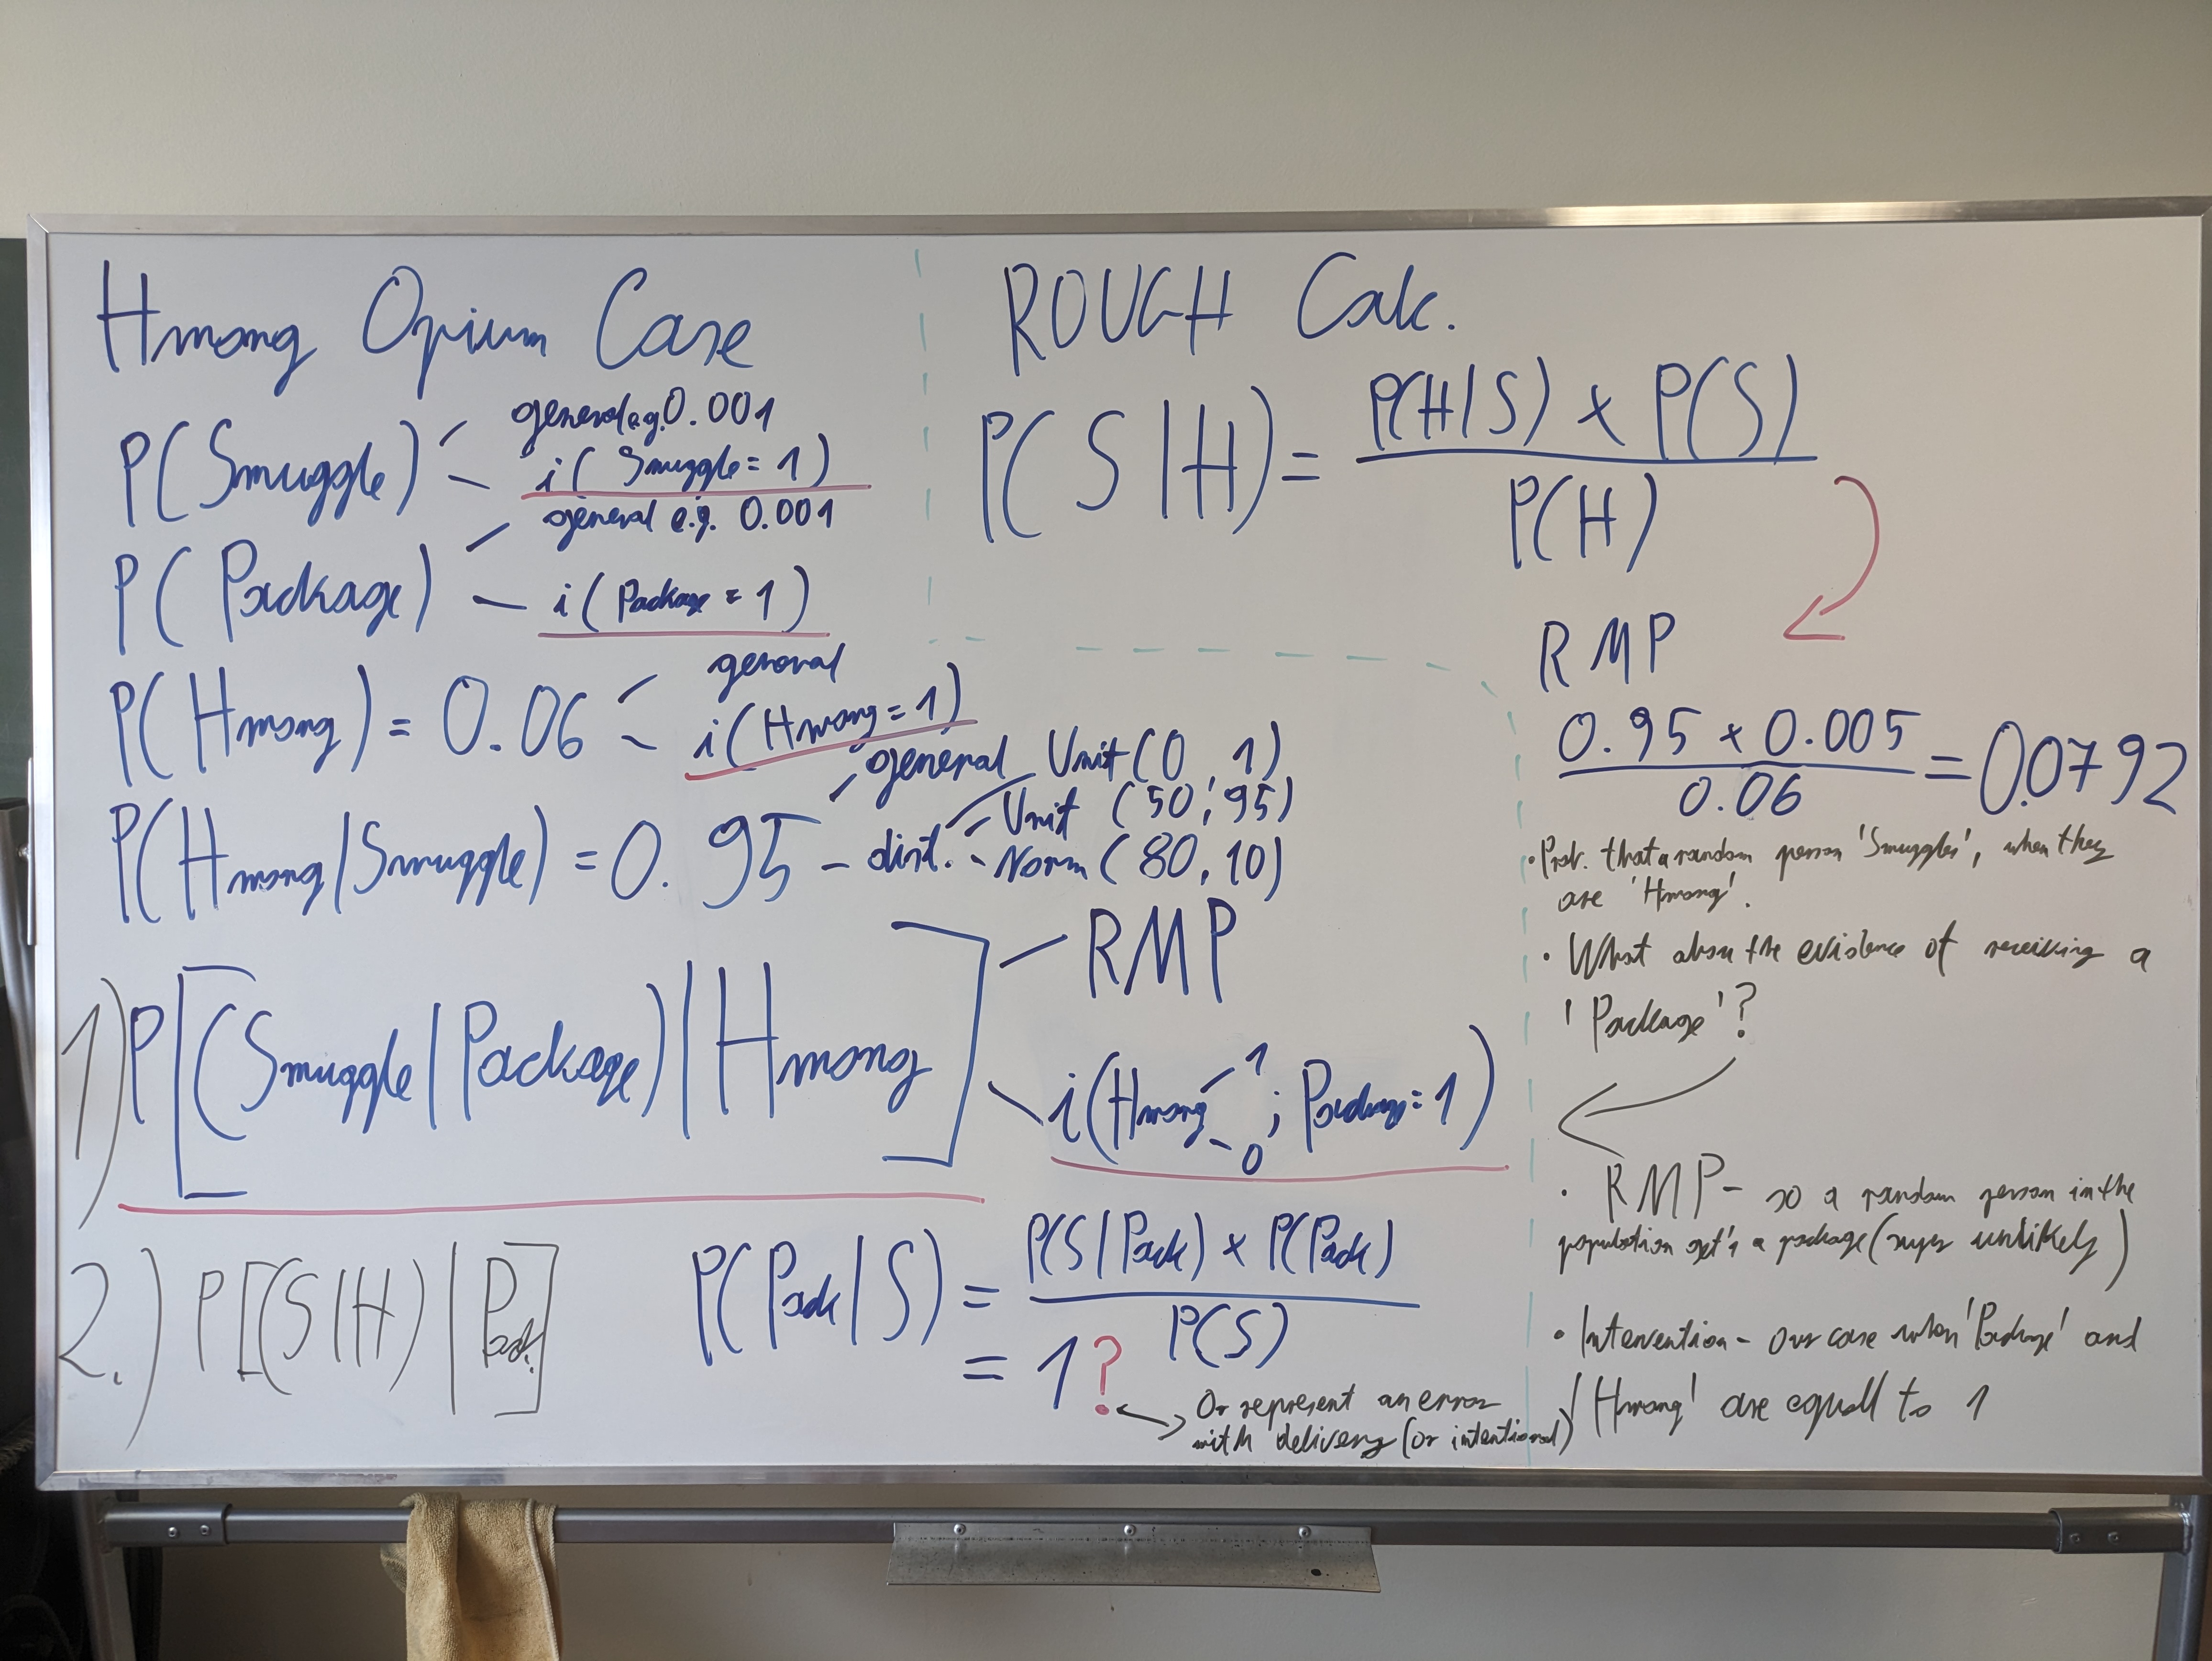 Hmong Opium Case
P(Smuggle)
general e.g. 0.001
i( Smuggle = 1)
P( Package)
general e.g. 0.001
i( Package = 1)
P( Hmong) = 0.06
general
i(Hmong = 1)
P(Hmong/Smuggle) = 0.95
general
- dist.
Unit (0, 1)
Unit (50; 95)
- Norm (80, 10)
1) P[(Smuggle|Package)|Hmong]
RMP
i(Hmong 1 0 ; Package = 1)
2.) P[(S|H)|Pack.]
P(Pack|S) = P(S|Pack) x P(Pack)
P(S)
= 1?
Or represent an error
with delivery (or intentional)
ROUGH Calc.
P(S|H) = P(H|S) x P(S)
P(H)
RMP
0.95 x 0.005 = 0.0792
0.06
• Prob. that a random person 'Smuggles', when they
are 'Hmong'.
• What about the evidence of receiving a
'Package'?
• RMP - so a random person in the
population get's a package (super unlikely)
• Intervention - our case when 'Package' and
'Hmong' are equall to 1